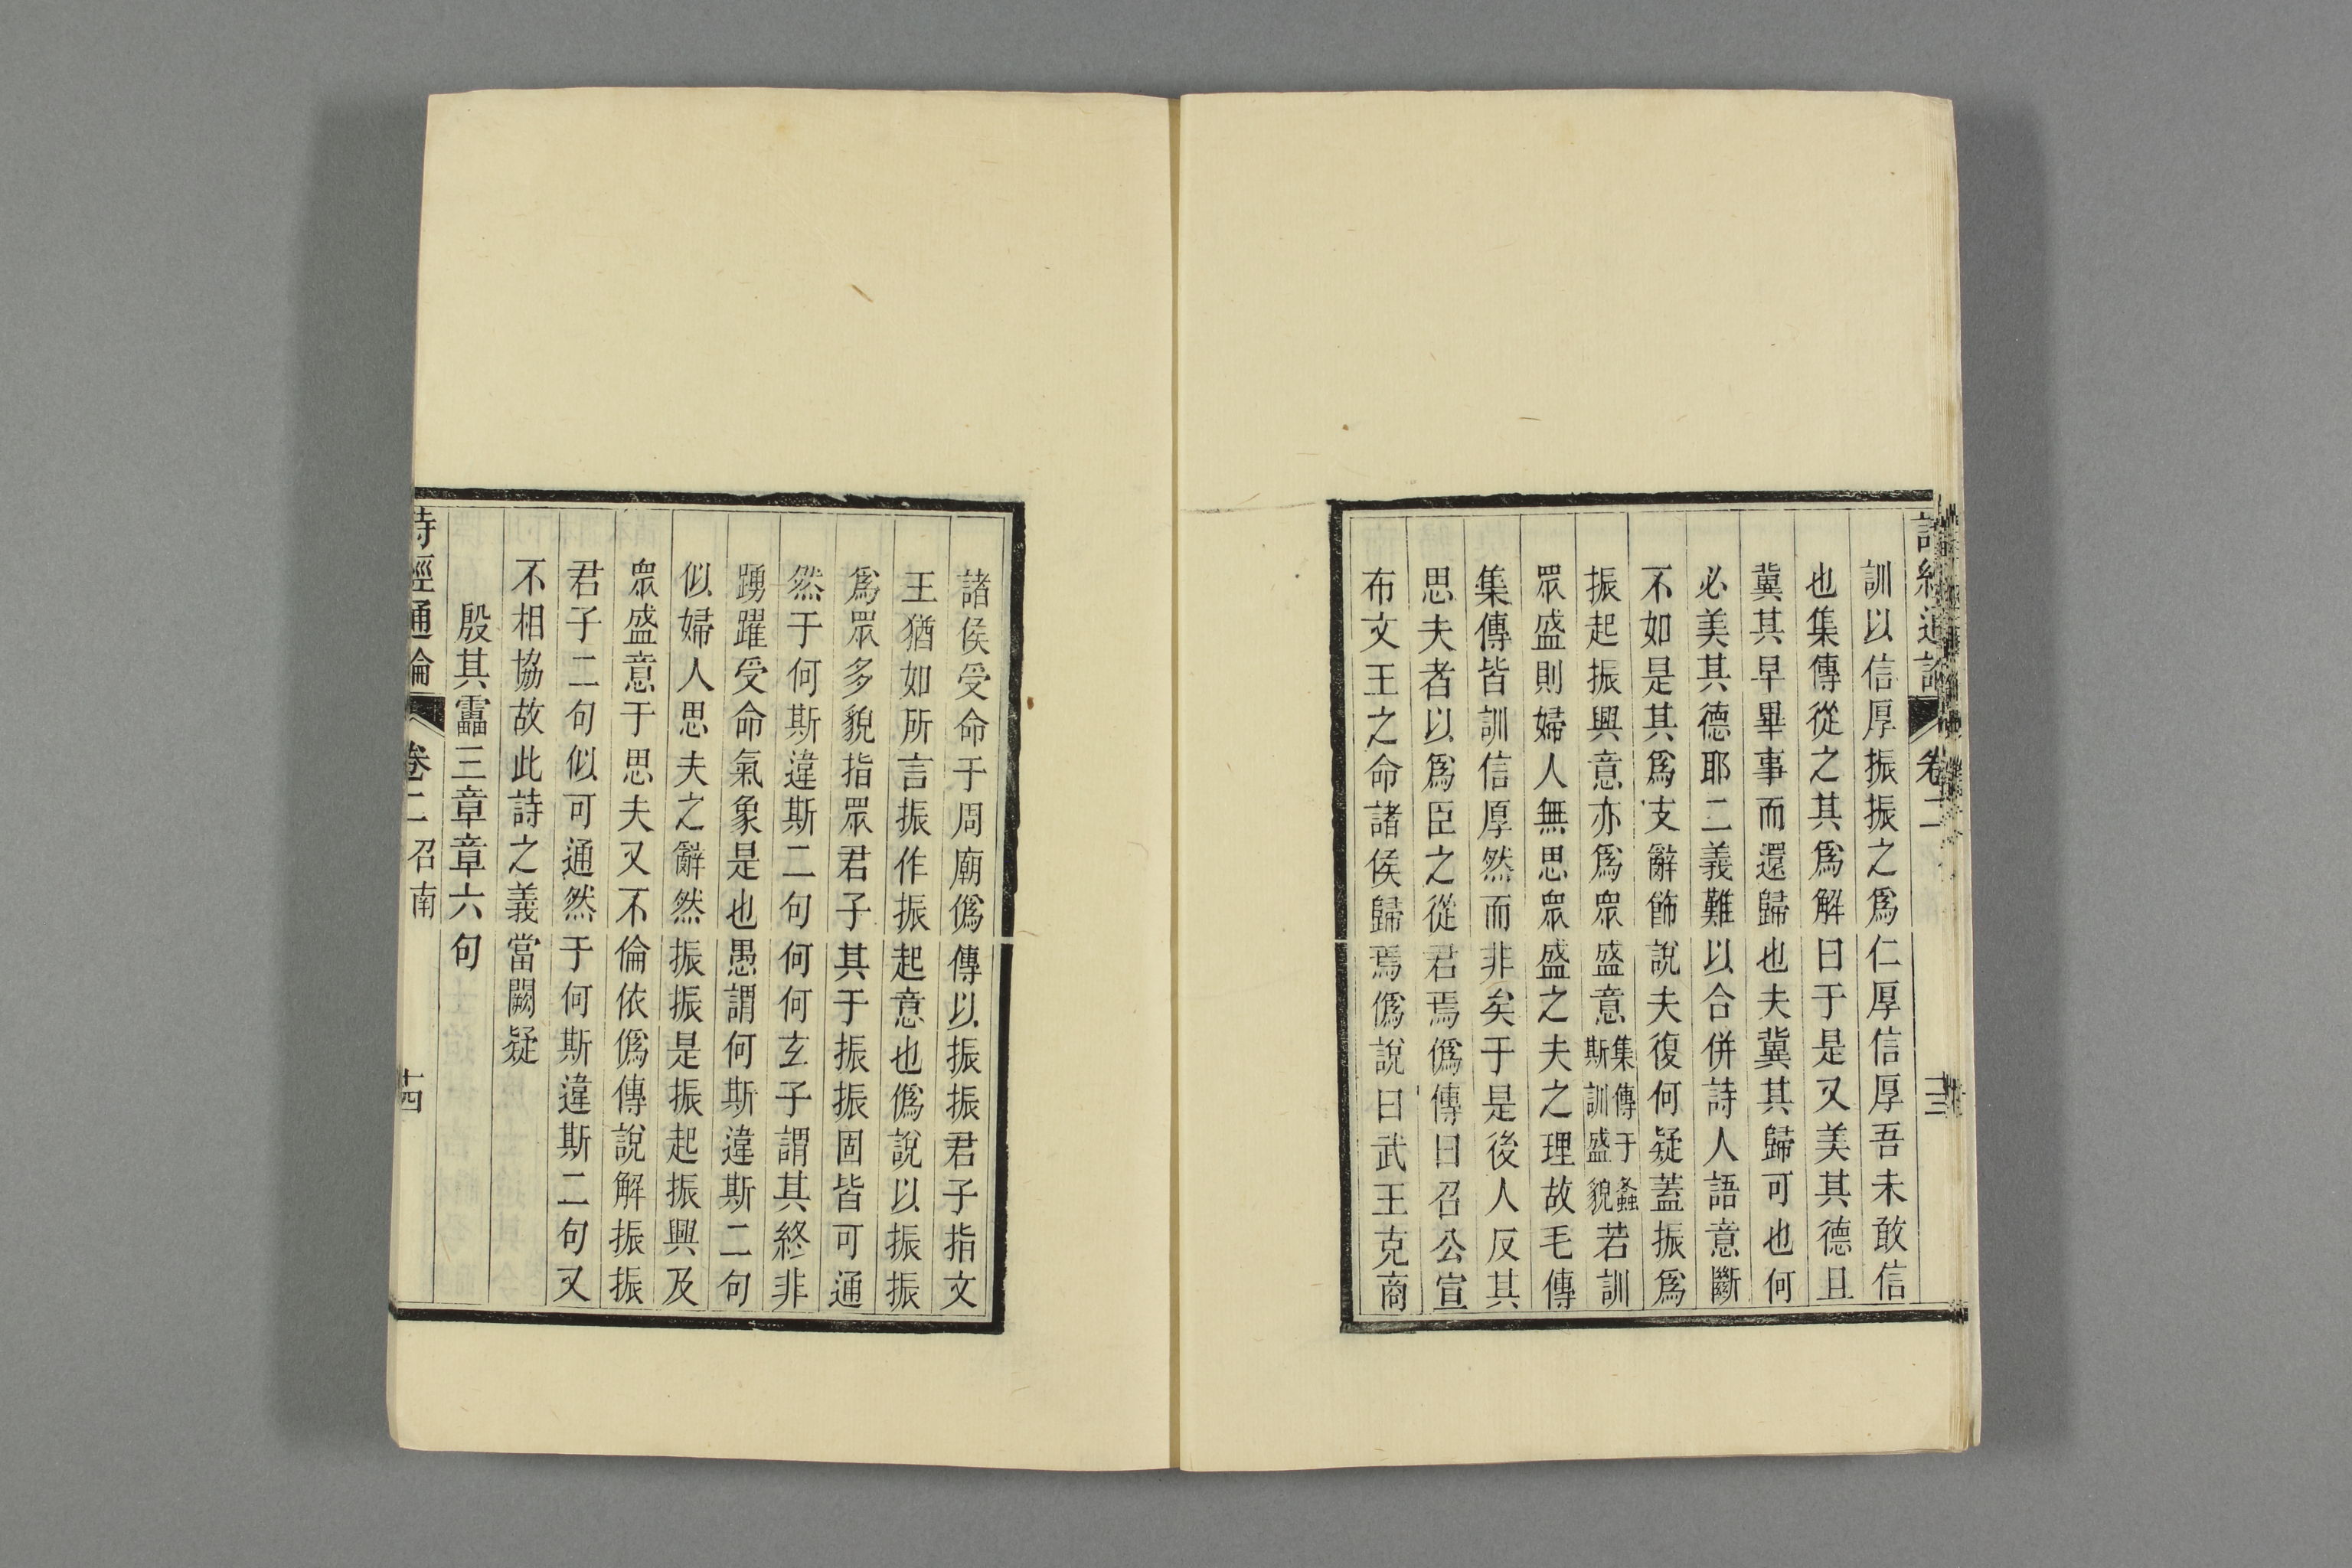 詩經通論 卷二 十三
訓以信厚振振之爲仁厚信厚吾未敢信
也集傳從之其爲解曰于是又美其德且
冀其早畢事而還歸也夫冀其歸可也何
必美其德耶二義難以合併詩人語意斷
不如是其爲支辭飾說夫復何疑蓋振爲
振起振興意亦爲眾盛意集傳于螽斯訓盛貌若訓
眾盛則婦人無思眾盛之夫之理故毛傳
集傳皆訓信厚然而非矣于是後人反其
思夫者以爲臣之從君焉僞傳曰召公宣
布文王之命諸侯歸焉僞說曰武王克商
諸侯受命于周廟僞傳以振振君子指文
王猶如所言振作振起意也僞說以振振
爲眾多貌指眾君子其于振振固皆可通
然于何斯違斯二句何何玄子謂其終非
踴躍受命氣象是也愚謂何斯違斯二句
似婦人思夫之辭然振振是振起振興及
眾盛意于思夫又不倫依僞傳說解振振
君子二句似可通然于何斯違斯二句又
不相協故此詩之義當闕疑
殷其靁三章章六句
詩經通論 卷二 召南 十四